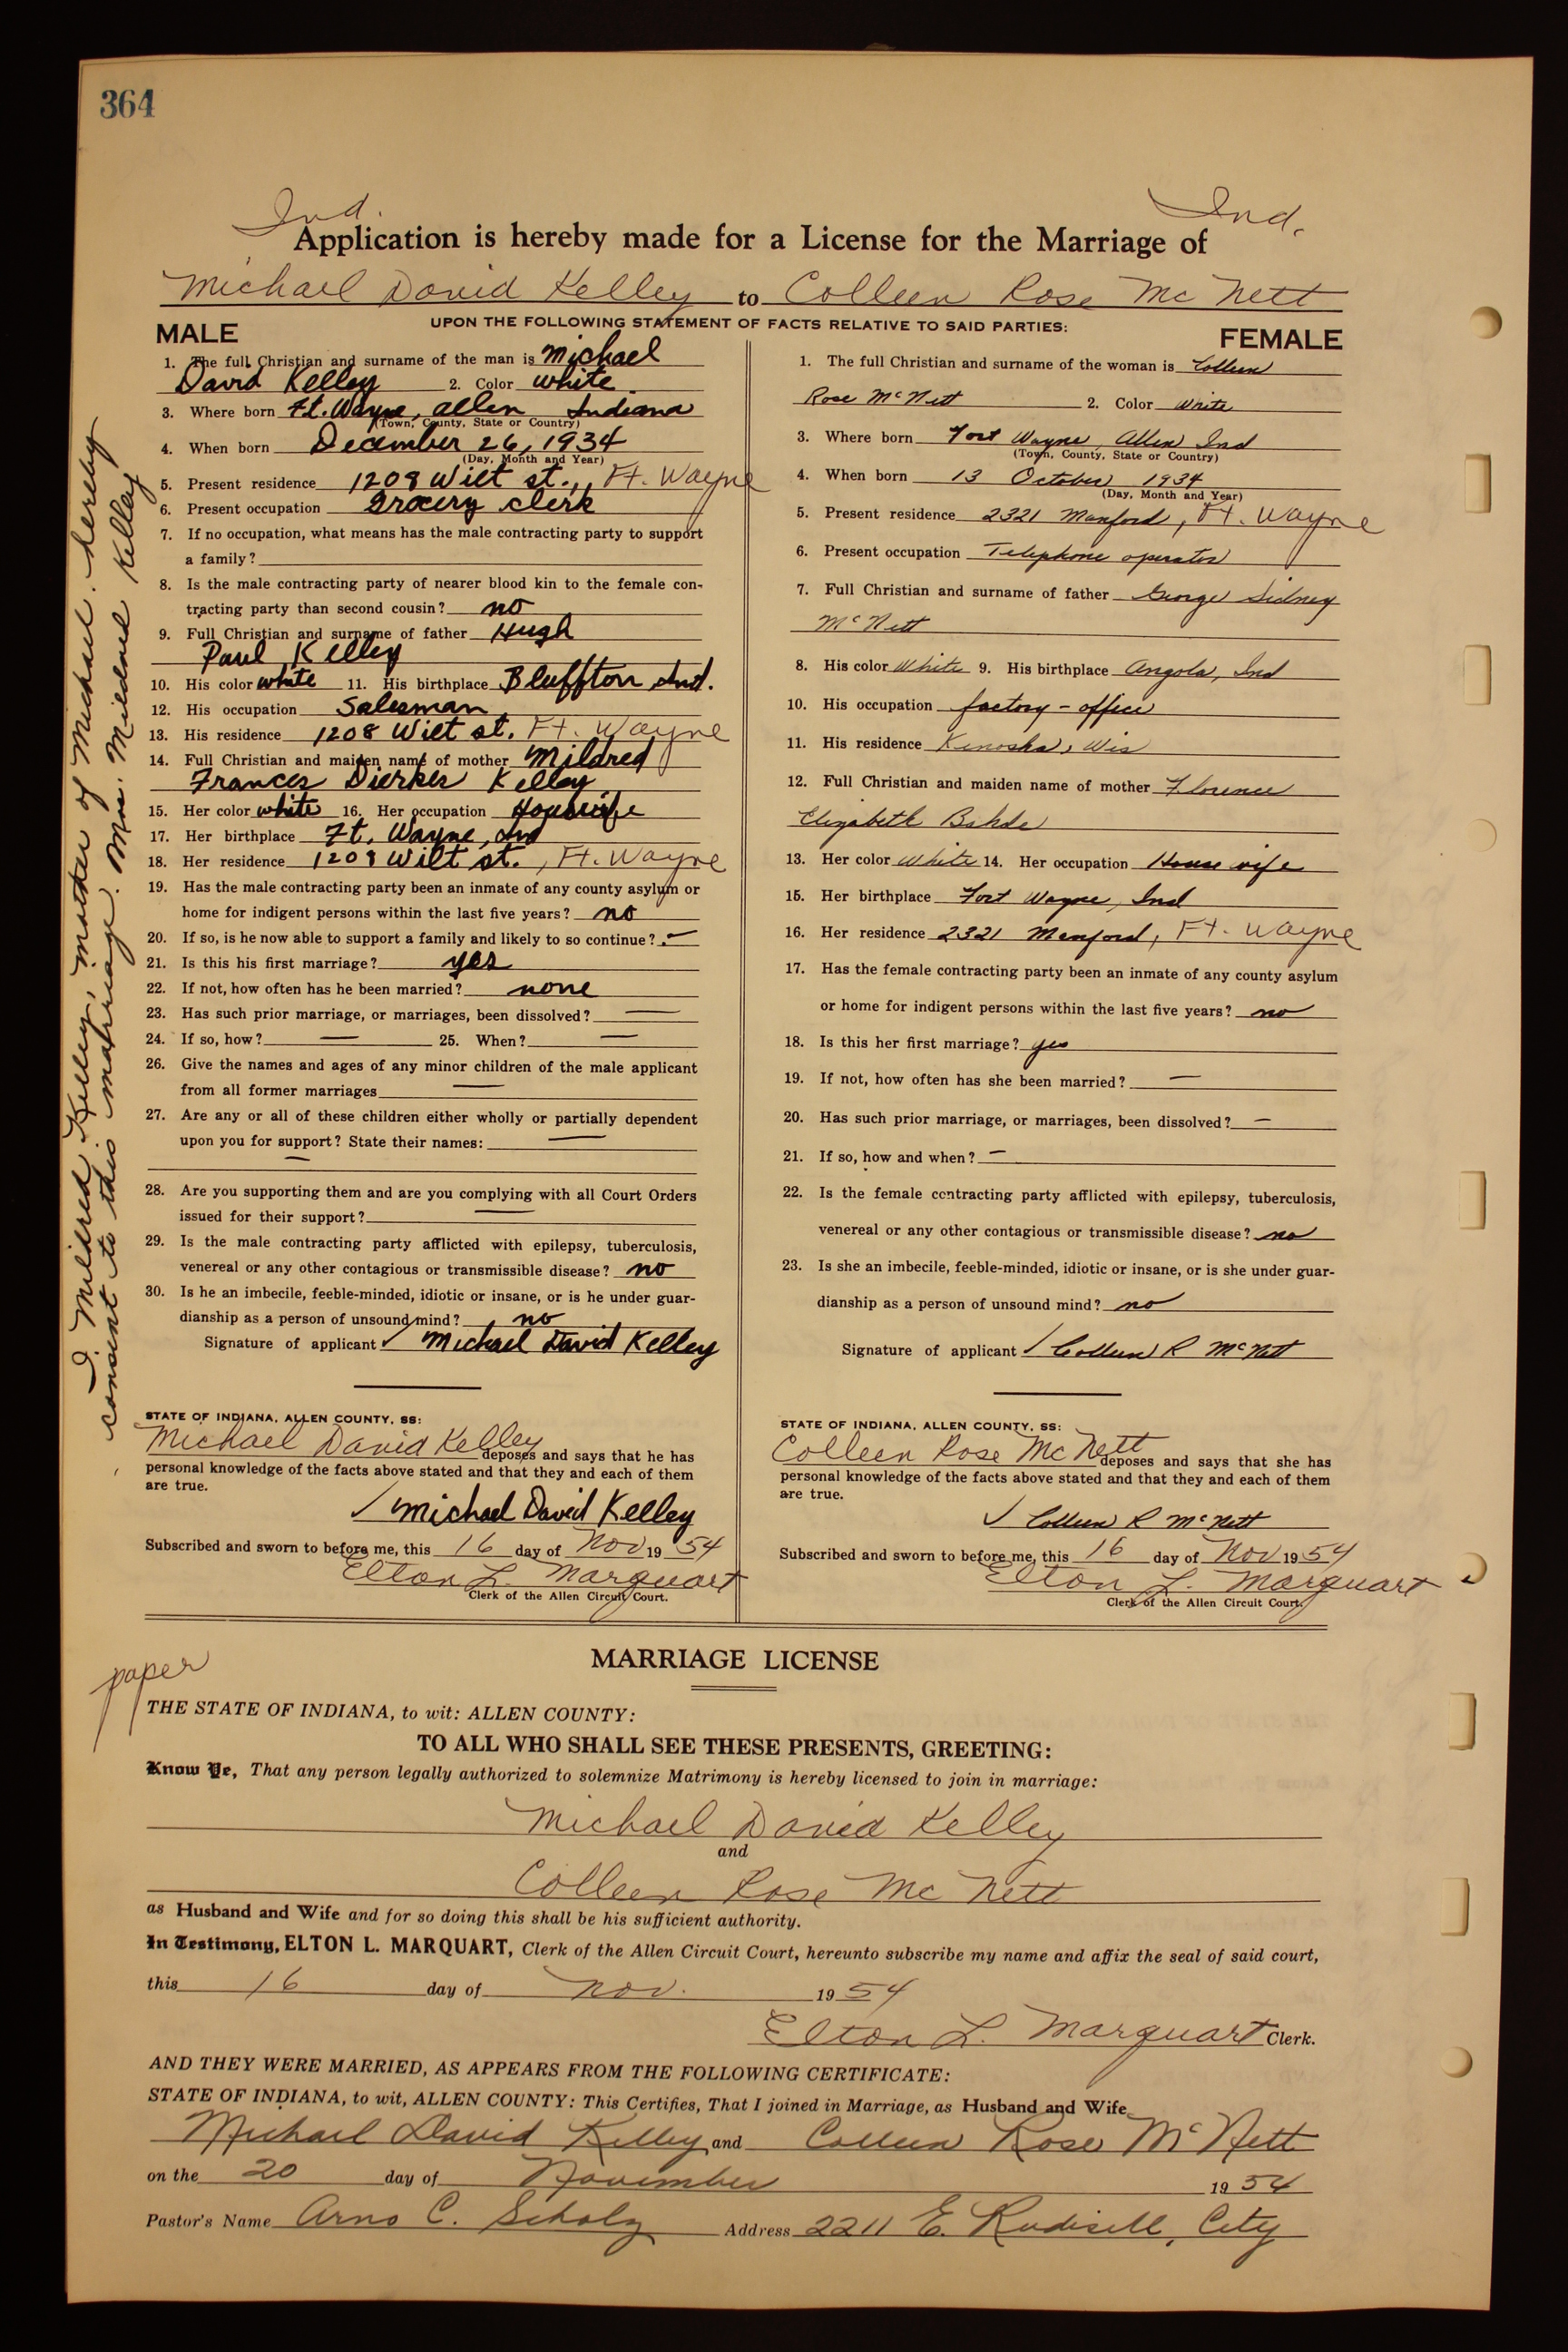 364
Ind. Ind.
Application is hereby made for a License for the Marriage of
Michael David Kelley to Colleen Rose Mc Nett
UPON THE FOLLOWING STATEMENT OF FACTS RELATIVE TO SAID PARTIES:
MALE
1. The full Christian and surname of the man is Michael
David Kelley 2. Color white
3. Where born Ft. Wayne, Allen Indiana
(Town, County, State or Country)
4. When born December 26, 1934
(Day, Month and Year)
5. Present residence 1208 Wilt st., Ft. Wayne
6. Present occupation Grocery clerk
7. If no occupation, what means has the male contracting party to support
a family?
8. Is the male contracting party of nearer blood kin to the female con-
tracting party than second cousin? no
9. Full Christian and surname of father Hugh
Paul Kelley
10. His color white 11. His birthplace Bluffton Ind.
12. His occupation Salesman
13. His residence 1208 Wilt st. Ft. Wayne
14. Full Christian and maiden name of mother Mildred
Frances Dierkes Kelley
15. Her color white 16. Her occupation Housewife
17. Her birthplace Ft. Wayne, Ind
18. Her residence 1208 Wilt st., Ft. Wayne
19. Has the male contracting party been an inmate of any county asylum or
home for indigent persons within the last five years? no
20. If so, is he now able to support a family and likely to so continue? —
21. Is this his first marriage? yes
22. If not, how often has he been married? none
23. Has such prior marriage, or marriages, been dissolved? —
24. If so, how? — 25. When? —
26. Give the names and ages of any minor children of the male applicant
from all former marriages —
27. Are any or all of these children either wholly or partially dependent
upon you for support? State their names: —
—
28. Are you supporting them and are you complying with all Court Orders
issued for their support? —
29. Is the male contracting party afflicted with epilepsy, tuberculosis,
venereal or any other contagious or transmissible disease? no
30. Is he an imbecile, feeble-minded, idiotic or insane, or is he under guar-
dianship as a person of unsound mind? no
Signature of applicant Michael David Kelley
STATE OF INDIANA, ALLEN COUNTY, SS:
Michael David Kelley deposes and says that he has
personal knowledge of the facts above stated and that they and each of them
are true.
Michael David Kelley
Subscribed and sworn to before me, this 16 day of Nov 19 54
Elton L. Marquart
Clerk of the Allen Circuit Court.
FEMALE
1. The full Christian and surname of the woman is Colleen
Rose McNett 2. Color White
3. Where born Fort Wayne, Allen Ind
(Town, County, State or Country)
4. When born 13 October 1934
(Day, Month and Year)
5. Present residence 2321 Manford, Ft. Wayne
6. Present occupation Telephone operator
7. Full Christian and surname of father George Sidney
McNett
8. His color White 9. His birthplace Angola, Ind
10. His occupation factory - office
11. His residence Kenosha, Wis
12. Full Christian and maiden name of mother Florence
Elizabeth
13. Her color White 14. Her occupation House wife
15. Her birthplace Fort Wayne, Ind
16. Her residence 2321 Manford, Ft. Wayne
17. Has the female contracting party been an inmate of any county asylum
or home for indigent persons within the last five years? no
18. Is this her first marriage? yes
19. If not, how often has she been married? —
20. Has such prior marriage, or marriages, been dissolved? —
21. If so, how and when? —
22. Is the female contracting party afflicted with epilepsy, tuberculosis,
venereal or any other contagious or transmissible disease? no
23. Is she an imbecile, feeble-minded, idiotic or insane, or is she under guar-
dianship as a person of unsound mind? no
Signature of applicant Colleen R McNett
STATE OF INDIANA, ALLEN COUNTY, SS:
Colleen Rose Mc Nett deposes and says that she has
personal knowledge of the facts above stated and that they and each of them
are true.
Colleen R McNett
Subscribed and sworn to before me, this 16 day of Nov 19 54
Elton L. Marquart
Clerk of the Allen Circuit Court.
I Mildred Kelley, mother of Michael hereby
consent to this marriage. Mrs. Mildred Kelley
MARRIAGE LICENSE
paper
THE STATE OF INDIANA, to wit: ALLEN COUNTY:
TO ALL WHO SHALL SEE THESE PRESENTS, GREETING:
Know Ye, That any person legally authorized to solemnize Matrimony is hereby licensed to join in marriage:
Michael David Kelley
and
Colleen Rose Mc Nett
as Husband and Wife and for so doing this shall be his sufficient authority.
In Testimony, ELTON L. MARQUART, Clerk of the Allen Circuit Court, hereunto subscribe my name and affix the seal of said court,
this 16 day of Nov. 19 54
Elton L. Marquart Clerk.
AND THEY WERE MARRIED, AS APPEARS FROM THE FOLLOWING CERTIFICATE:
STATE OF INDIANA, to wit, ALLEN COUNTY: This Certifies, That I joined in Marriage, as Husband and Wife
Michael David Kelley and Colleen Rose McNett
on the 20 day of November 19 54
Pastor's Name Arno C. Scholz Address 2211 E. Rudisill, City